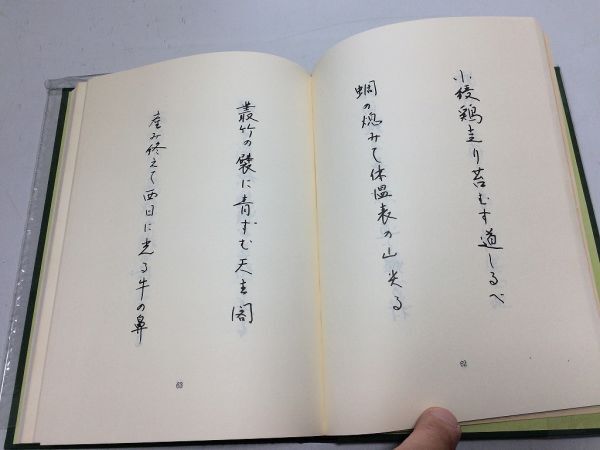 小綬鶏走り苔むす道しるべ
蜩の熄みて体温表の山尖る
62
叢竹の襞に青ずむ天主閣
産み終えて西日に光る牛の鼻
63